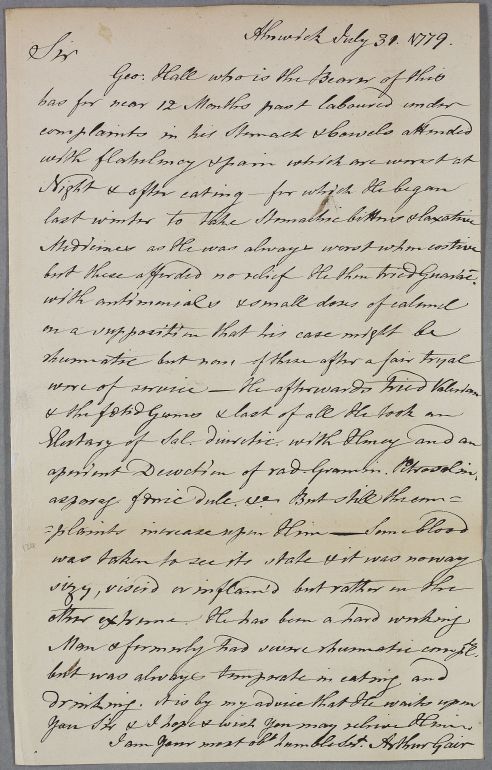 Alnwick July 31. 1779.
Sir
Geo: Hall who is the Bearer of this
has for near 12 Months past laboured under
complaints in his Stomach & bowels attended
with flatulency & pain which are worst at
Night & after eating – for which He began
last winter to take Stomachic bitters & laxative
Medicines as He was always worst when costive
but these afforded no relief He then tried Guaiac.
with antimonials & small doses of calomel
on a supposition that his case might be
rhumatic but none of these after a fair tryal
were of service – He afterwards tried Valerian
& the fœtid Gums & last of all He took an
Electary of Sal. diuretic. with Honey and an
aperient Decoction of rad. Gramin. Petroselin.
asparag. &c But still the com=
=plaints increase upon Him – Some blood
was taken to see its state & it was noway
sizy, viscid or inflam'd but rather in the
other extreme. He has been a hard working
Man & formerly had severe rhumatic compts.
but was always temperate in eating and
drinking. it is by my advice that He waits upon
You Sir & I hope & wish You may relieve Him
I am Your most obt. humble Sert. Arthur Gair